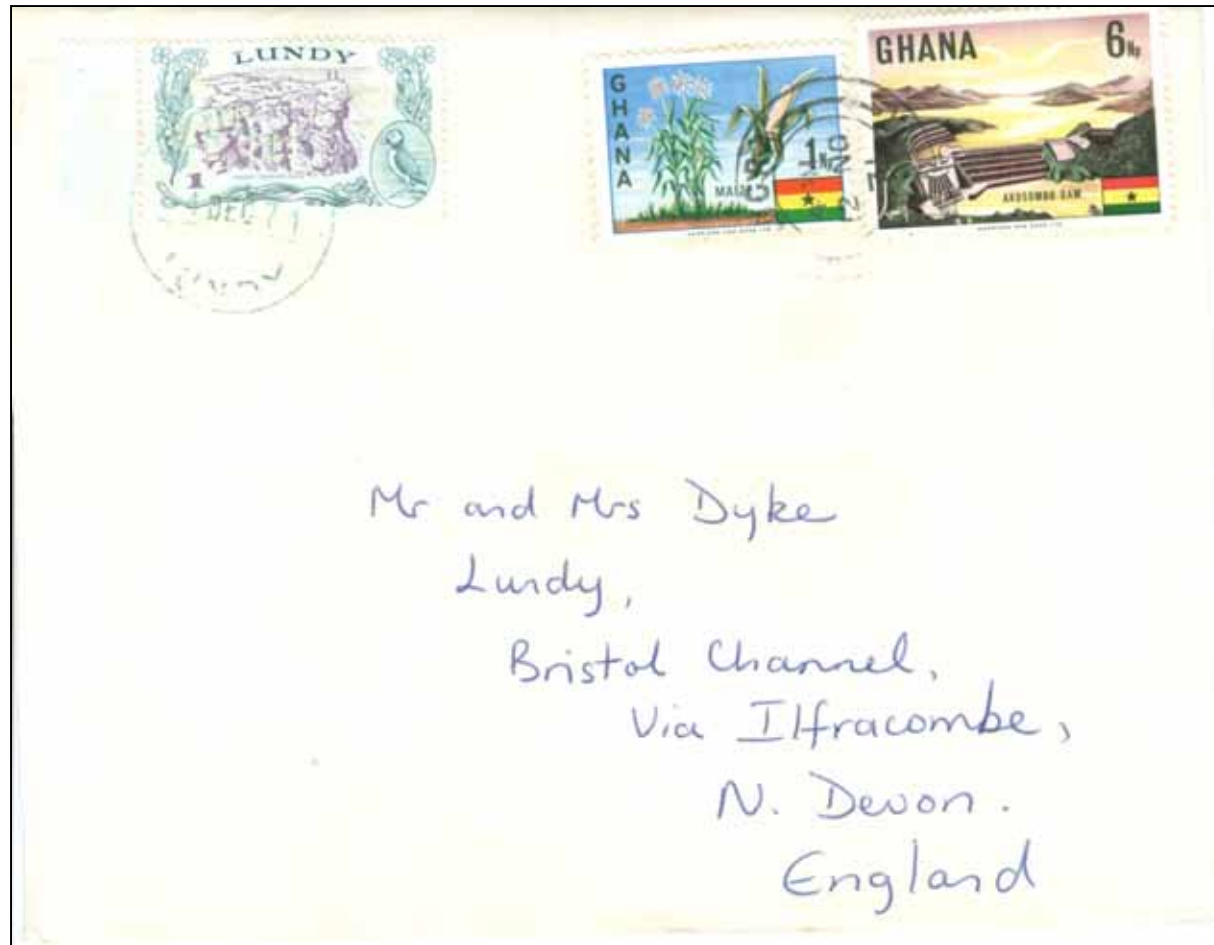 LUNDY
1
DEC 71
LUNDY
GHANA
MAIZE
1 Np
GHANA
6 Np
AKOSOMBO DAM
HARRISON AND SONS LTD
Mr and Mrs Dyke
Lundy,
Bristol Channel,
Via Ilfracombe,
N. Devon.
England